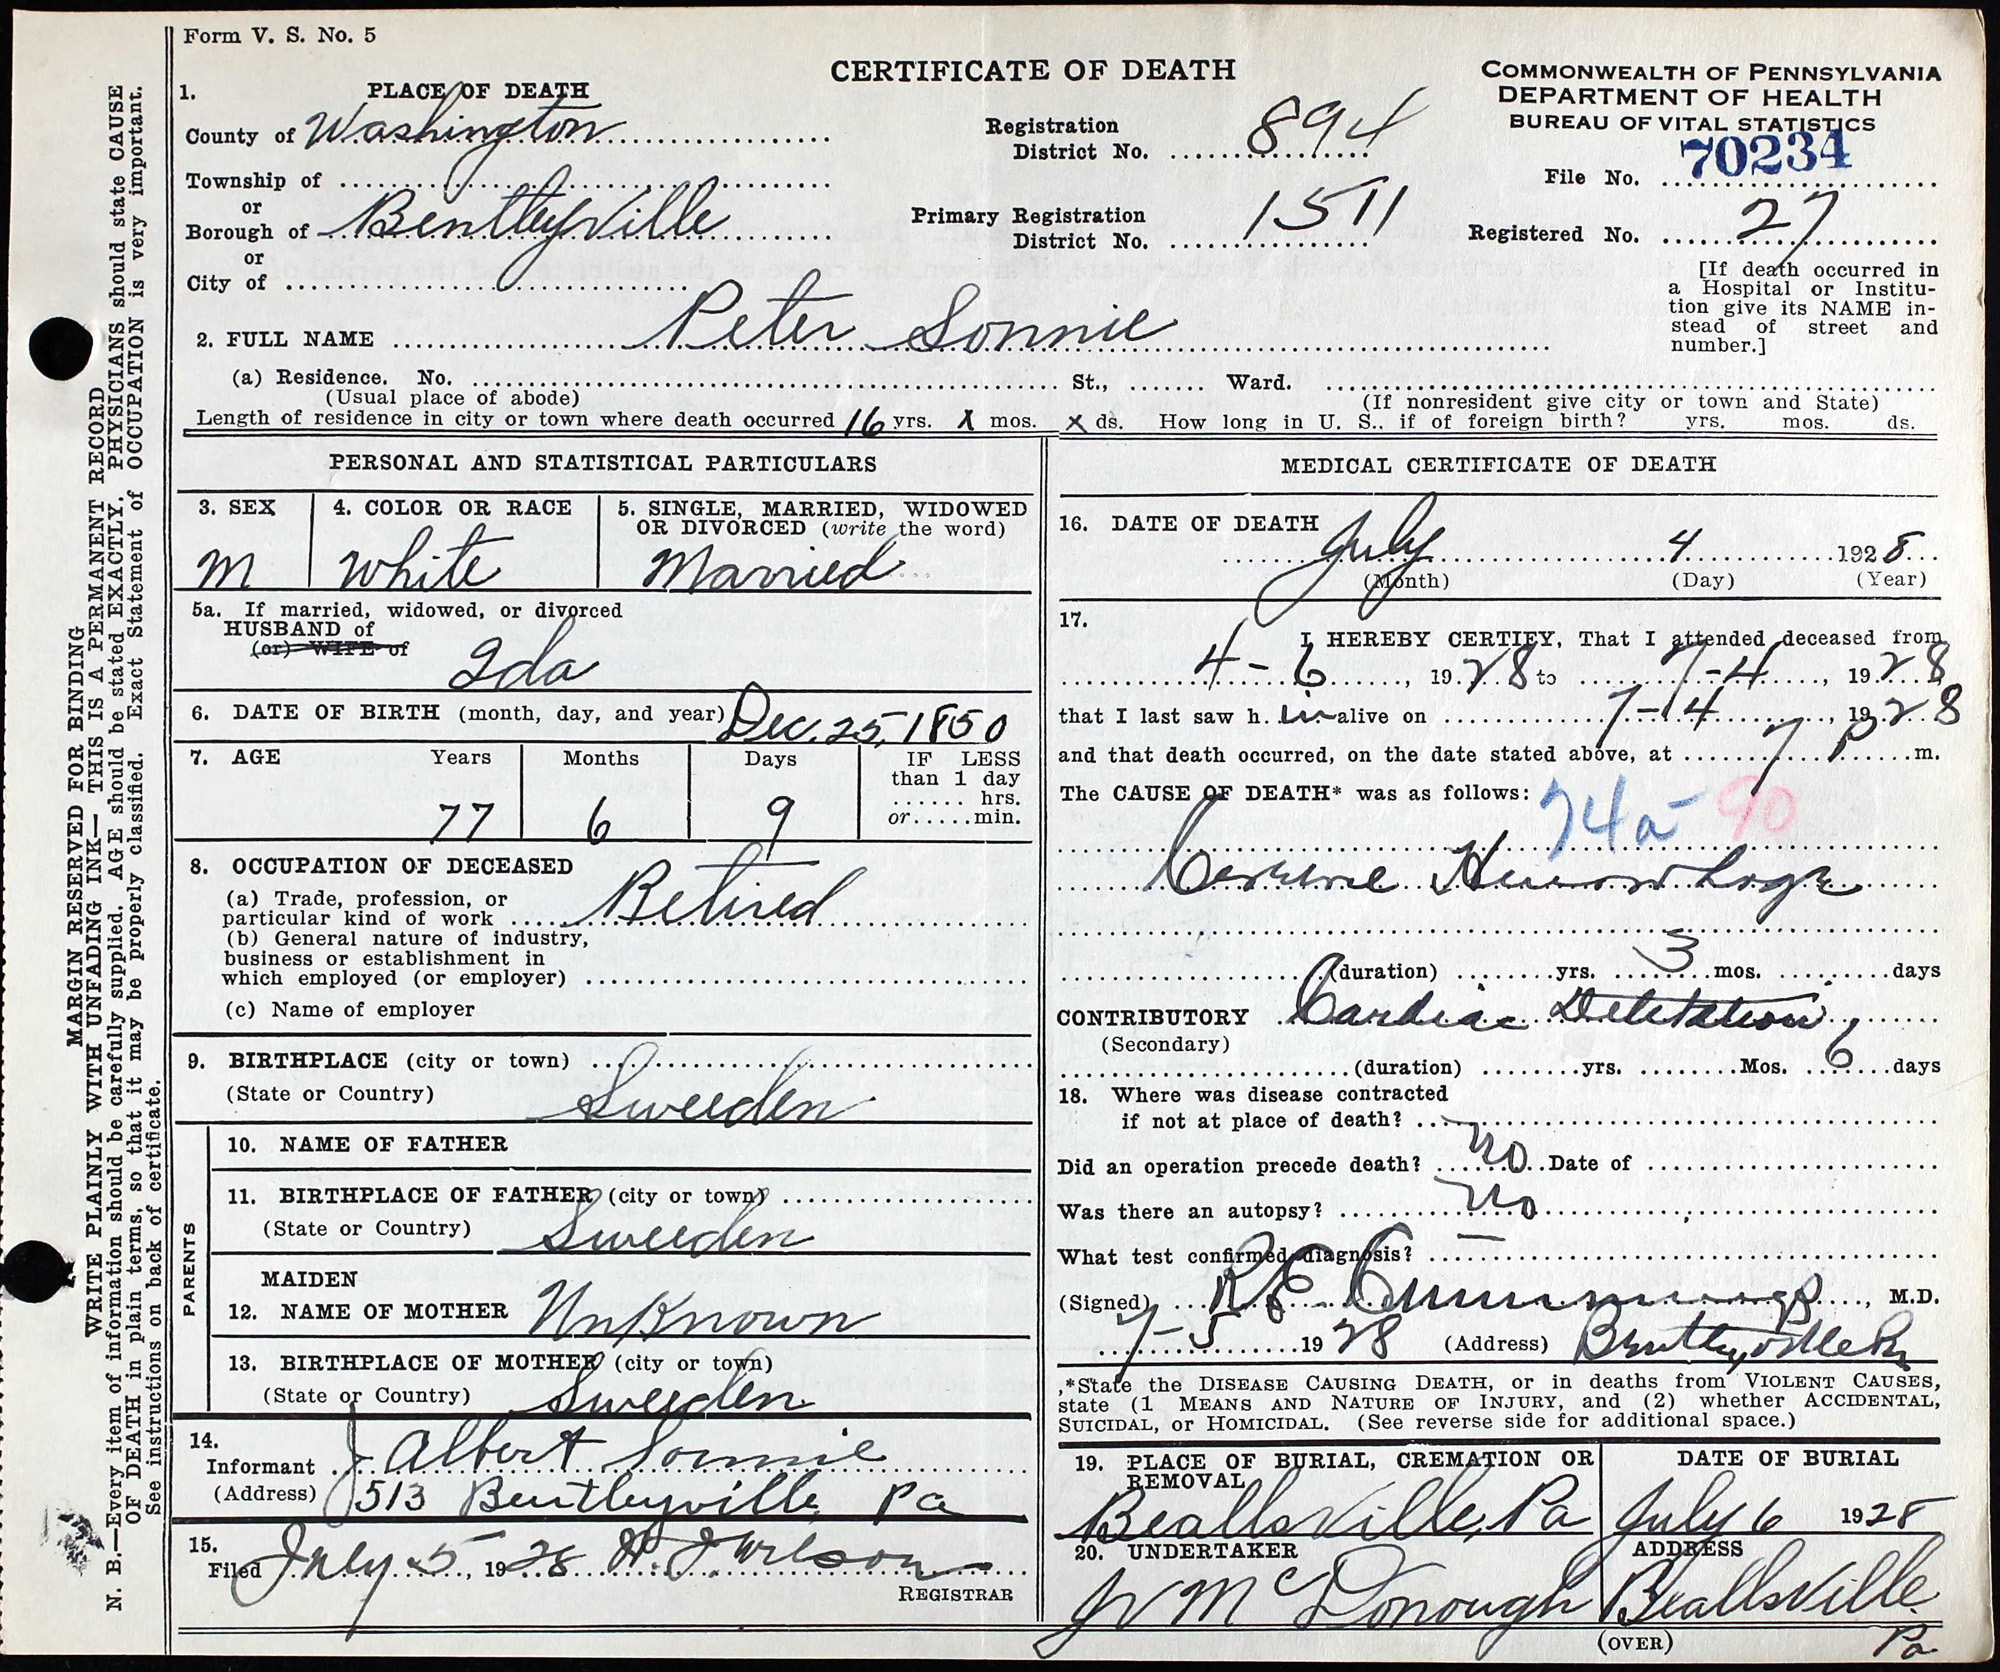 Form V. S. No. 5
CERTIFICATE OF DEATH
COMMONWEALTH OF PENNSYLVANIA
DEPARTMENT OF HEALTH
BUREAU OF VITAL STATISTICS
1. PLACE OF DEATH
County of Washington
Registration District No. 894
File No. 70234
Township of
or
Borough of Bentleyville
or
City of
Primary Registration District No. 1511
Registered No. 27
[If death occurred in
a Hospital or Institu-
tion give its NAME in-
stead of street and
number.]
2. FULL NAME Peter Sonnie
(a) Residence. No. St., Ward.
(Usual place of abode)
(If nonresident give city or town and State)
Length of residence in city or town where death occurred 16 yrs. X mos. X ds. How long in U. S., if of foreign birth? yrs. mos. ds.
PERSONAL AND STATISTICAL PARTICULARS
3. SEX
M
4. COLOR OR RACE
White
5. SINGLE, MARRIED, WIDOWED
OR DIVORCED (write the word)
Married
5a. If married, widowed, or divorced
HUSBAND of
(or) WIFE of
Ida
6. DATE OF BIRTH (month, day, and year) Dec. 25, 1850
7. AGE Years Months Days IF LESS
than 1 day
...... hrs.
or.....min.
77 6 9
8. OCCUPATION OF DECEASED
(a) Trade, profession, or
particular kind of work Retired
(b) General nature of industry,
business or establishment in
which employed (or employer)
(c) Name of employer
9. BIRTHPLACE (city or town)
(State or Country) Sweeden
PARENTS
10. NAME OF FATHER
11. BIRTHPLACE OF FATHER (city or town)
(State or Country) Sweeden
MAIDEN
12. NAME OF MOTHER Unknown
13. BIRTHPLACE OF MOTHER (city or town)
(State or Country) Sweeden
14.
Informant J Albert Sonnie
(Address) 513 Bentleyville, Pa
15.
Filed July 5, 1928 Wilson
REGISTRAR
MEDICAL CERTIFICATE OF DEATH
16. DATE OF DEATH
July 4 1928
(Month) (Day) (Year)
17.
I HEREBY CERTIFY, That I attended deceased from
4-6, 1928 to 7-4, 1928
that I last saw him alive on 7-4, 1928
and that death occurred, on the date stated above, at 7 P m.
The CAUSE OF DEATH* was as follows:
74a 90
Hemorrhage
(duration) yrs. 3 mos. days
CONTRIBUTORY Cardiac
(Secondary)
(duration) yrs. Mos. 6 days
18. Where was disease contracted
if not at place of death?
Did an operation precede death? No Date of
Was there an autopsy? No
What test confirmed diagnosis? –
(Signed) Cummings, M.D.
7-5 1928 (Address) Bentleyville Pa
*State the DISEASE CAUSING DEATH, or in deaths from VIOLENT CAUSES,
state (1 MEANS AND NATURE OF INJURY, and (2) whether ACCIDENTAL,
SUICIDAL, or HOMICIDAL. (See reverse side for additional space.)
19. PLACE OF BURIAL, CREMATION OR
REMOVAL
Beallsville, Pa
DATE OF BURIAL
July 6 1928
20. UNDERTAKER
McDonough
ADDRESS
Beallsville
Pa
(OVER)
MARGIN RESERVED FOR BINDING
WRITE PLAINLY WITH UNFADING INK— THIS IS A PERMANENT RECORD
N. B.—Every item of information should be carefully supplied. AGE should be stated EXACTLY. PHYSICIANS should state CAUSE
OF DEATH in plain terms, so that it may be properly classified. Exact Statement of OCCUPATION is very important.
See instructions on back of certificate.